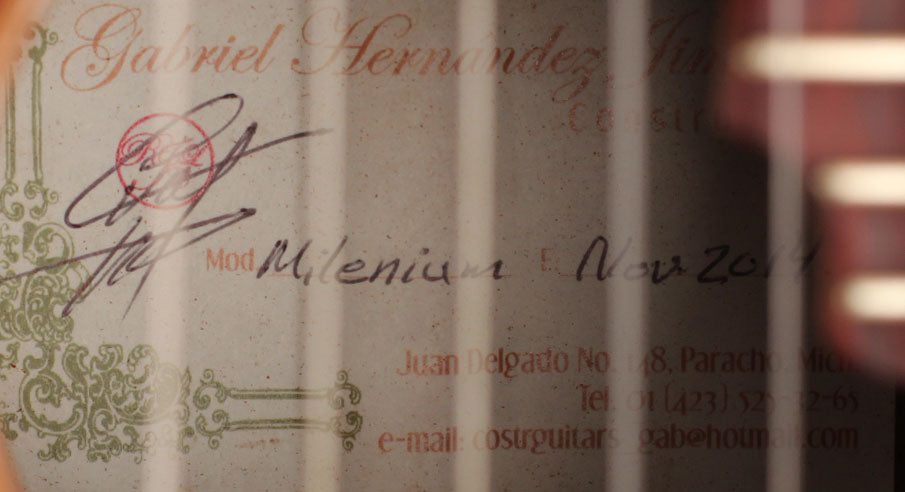 Gabriel Hernández
Mod Milenium F Nov. 2014
Juan Delgado No. 148, Paracho, Mich.
Tel. 01 (423) 525-32-65
e-mail: costrguitars_gab@hotmail.com